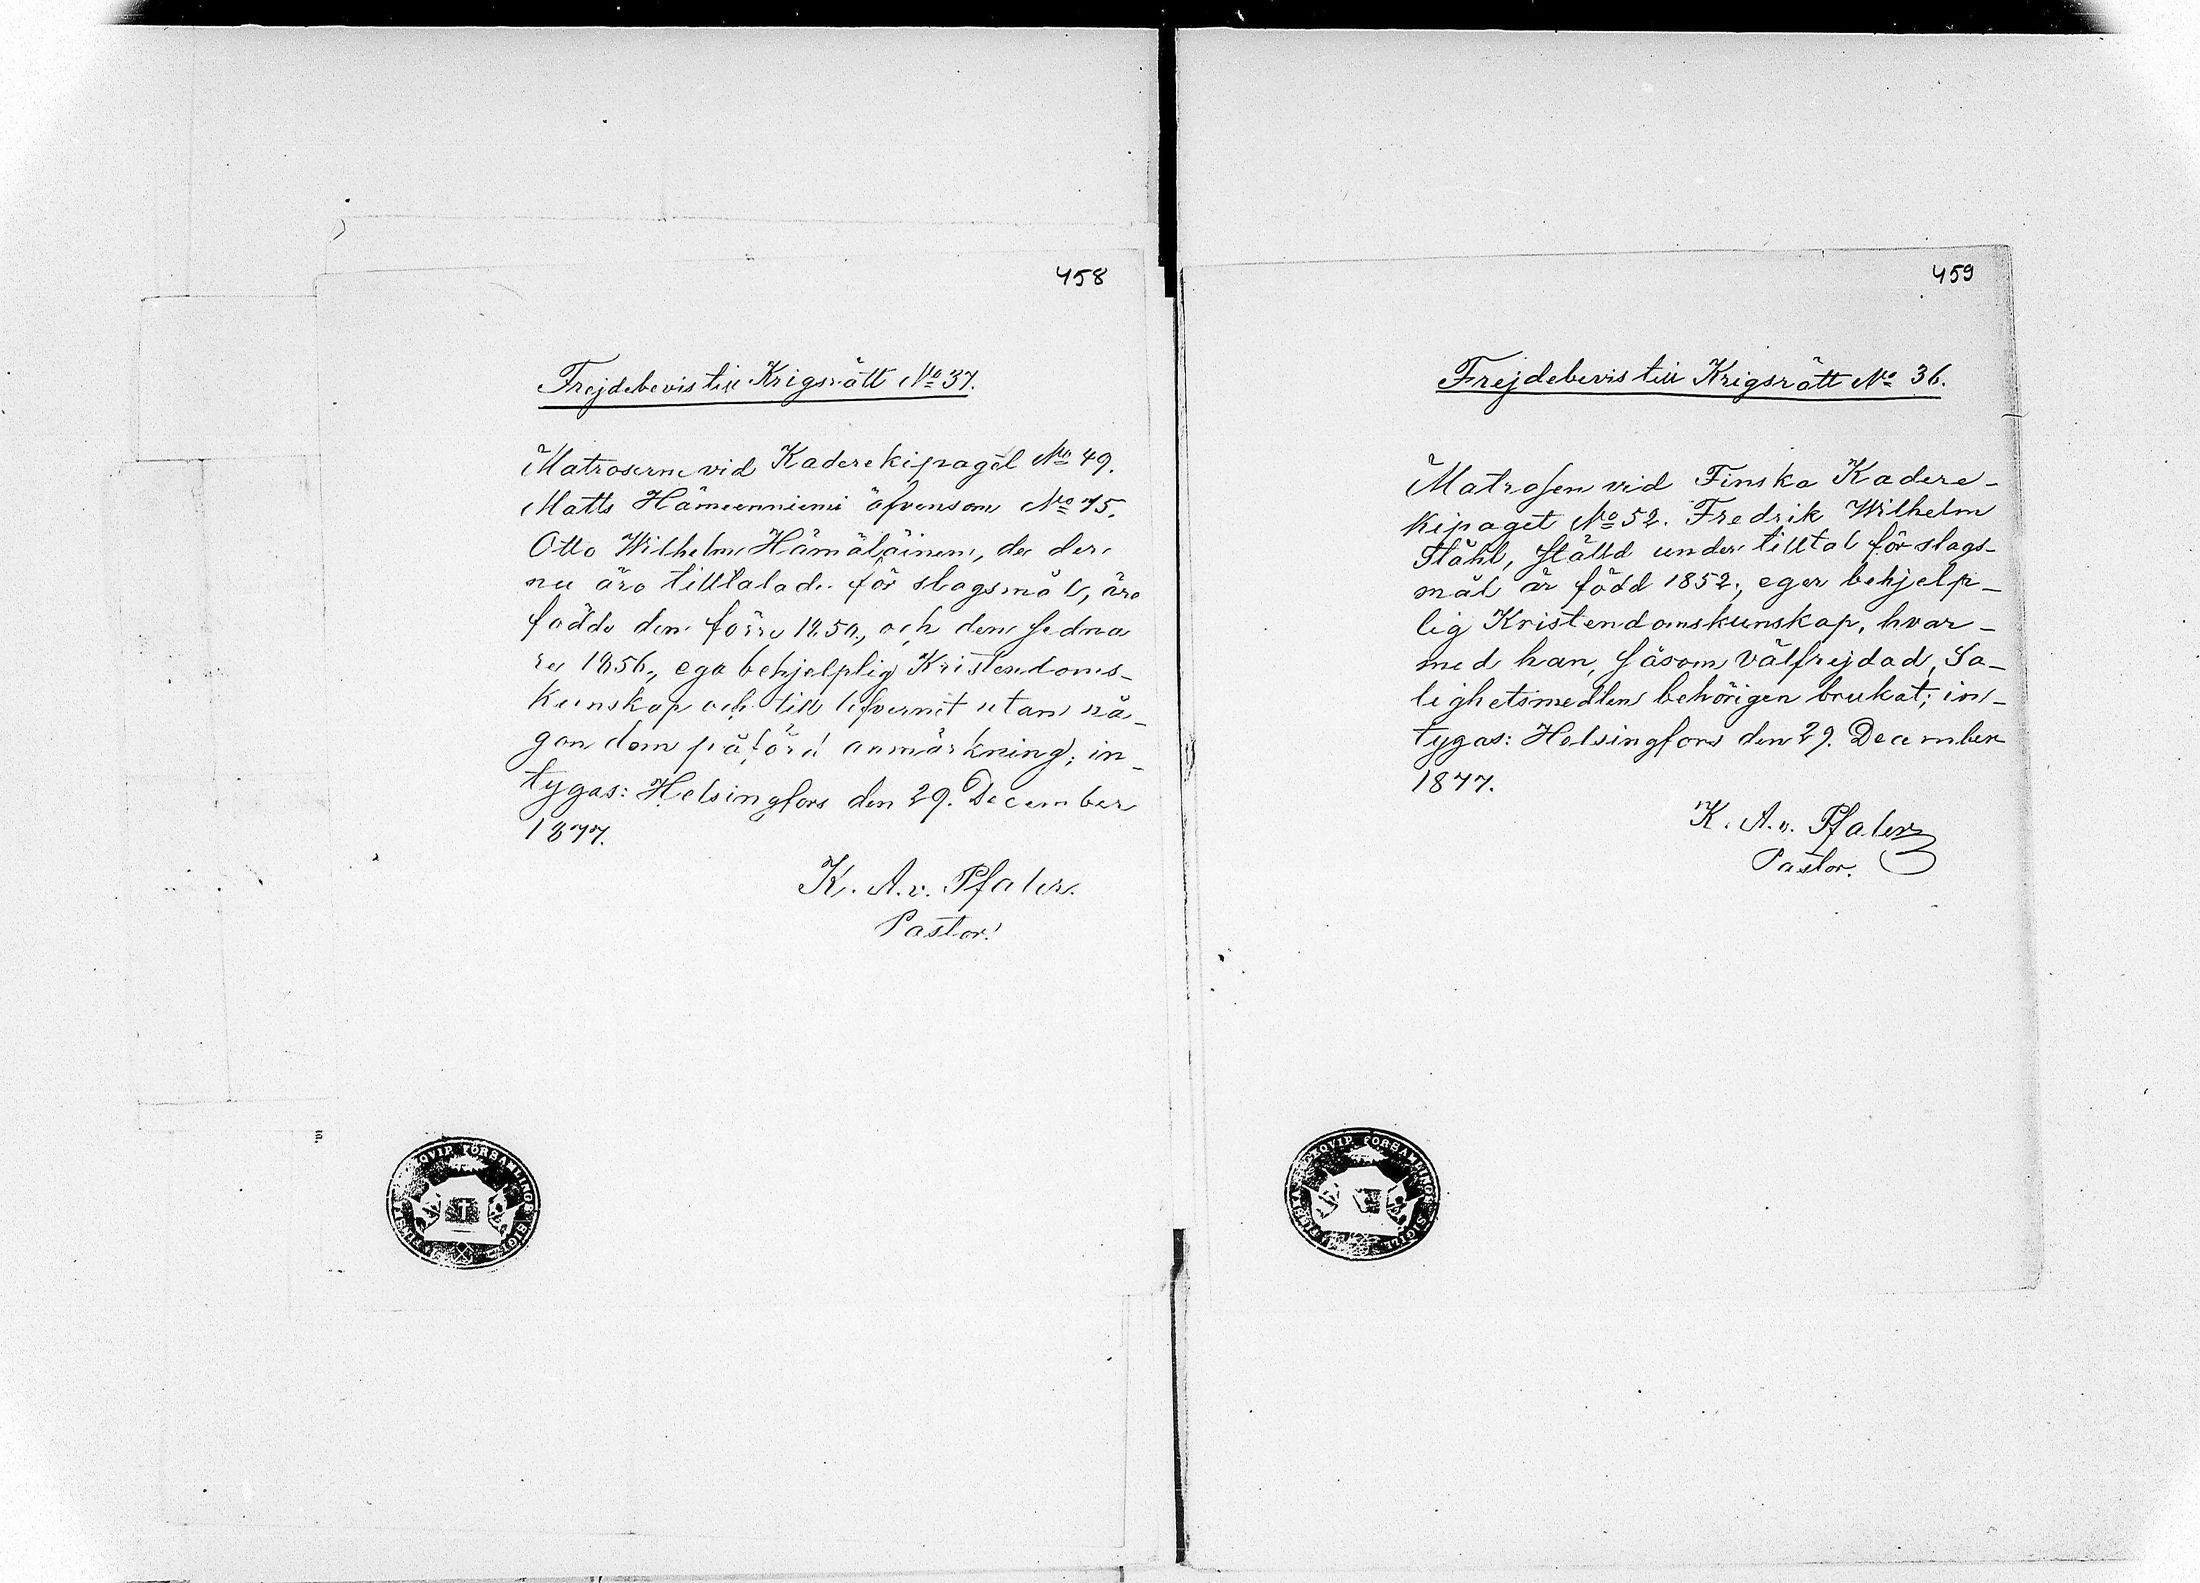 458
Frejdebevis till Krigsrätt No 37.
Matroserne vid Kaderekipaget No 49.
Matts Hämeenniemi äfvensom No 75.
Otto Wilhelm Hämäläinen, de der
nu äro tilltalade för slagsmål, äro
födde den förre 1850, och den sedna
re 1856, ega behjelplig Kristendoms-
kunskap och till lefvernet utan nå-
gon dem påförd anmärkning; in-
tygas: Helsingfors den 29. December
1877.
K. A. v. Pfaler.
Pastor.
EQVIP. FÖRSAMLINGS SIGILL
459
Frejdebevis till Krigsrätt No 36.
Matrosen vid Finska Kadere-
kipaget No 52. Fredrik Wilhelm
Ståhl, ställd under tilltal för slags-
mål är född 1852, eger behjelp-
lig Kristendomskunskap, hvar-
med han, såsom välfrejdad, Sa-
lighetsmedlen behörigen brukat; in-
tygas: Helsingfors den 29. December
1877.
K. A. v. Pfaler
Pastor.
EQVIP. FÖRSAMLINGS SIGILL